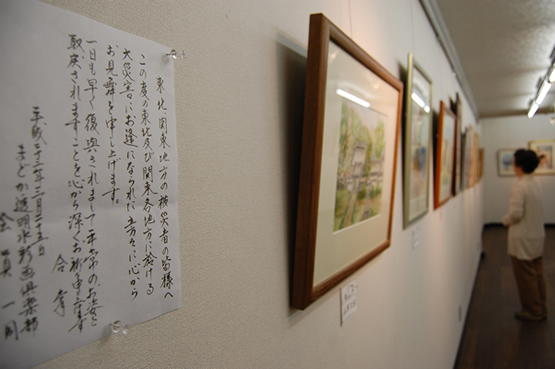 東北関東地方の被災者の皆様へ
この度の東北及び関東各地方に於ける
大災害にお逢になられた方々に心から
お見舞を申し上げます。
一日も早く復興されまして平常のお姿を
取戻されますことを心から深くお祈申し上げます
合掌
平成二十三年三月二十五日
まどか透明水彩画倶楽部
会員一同